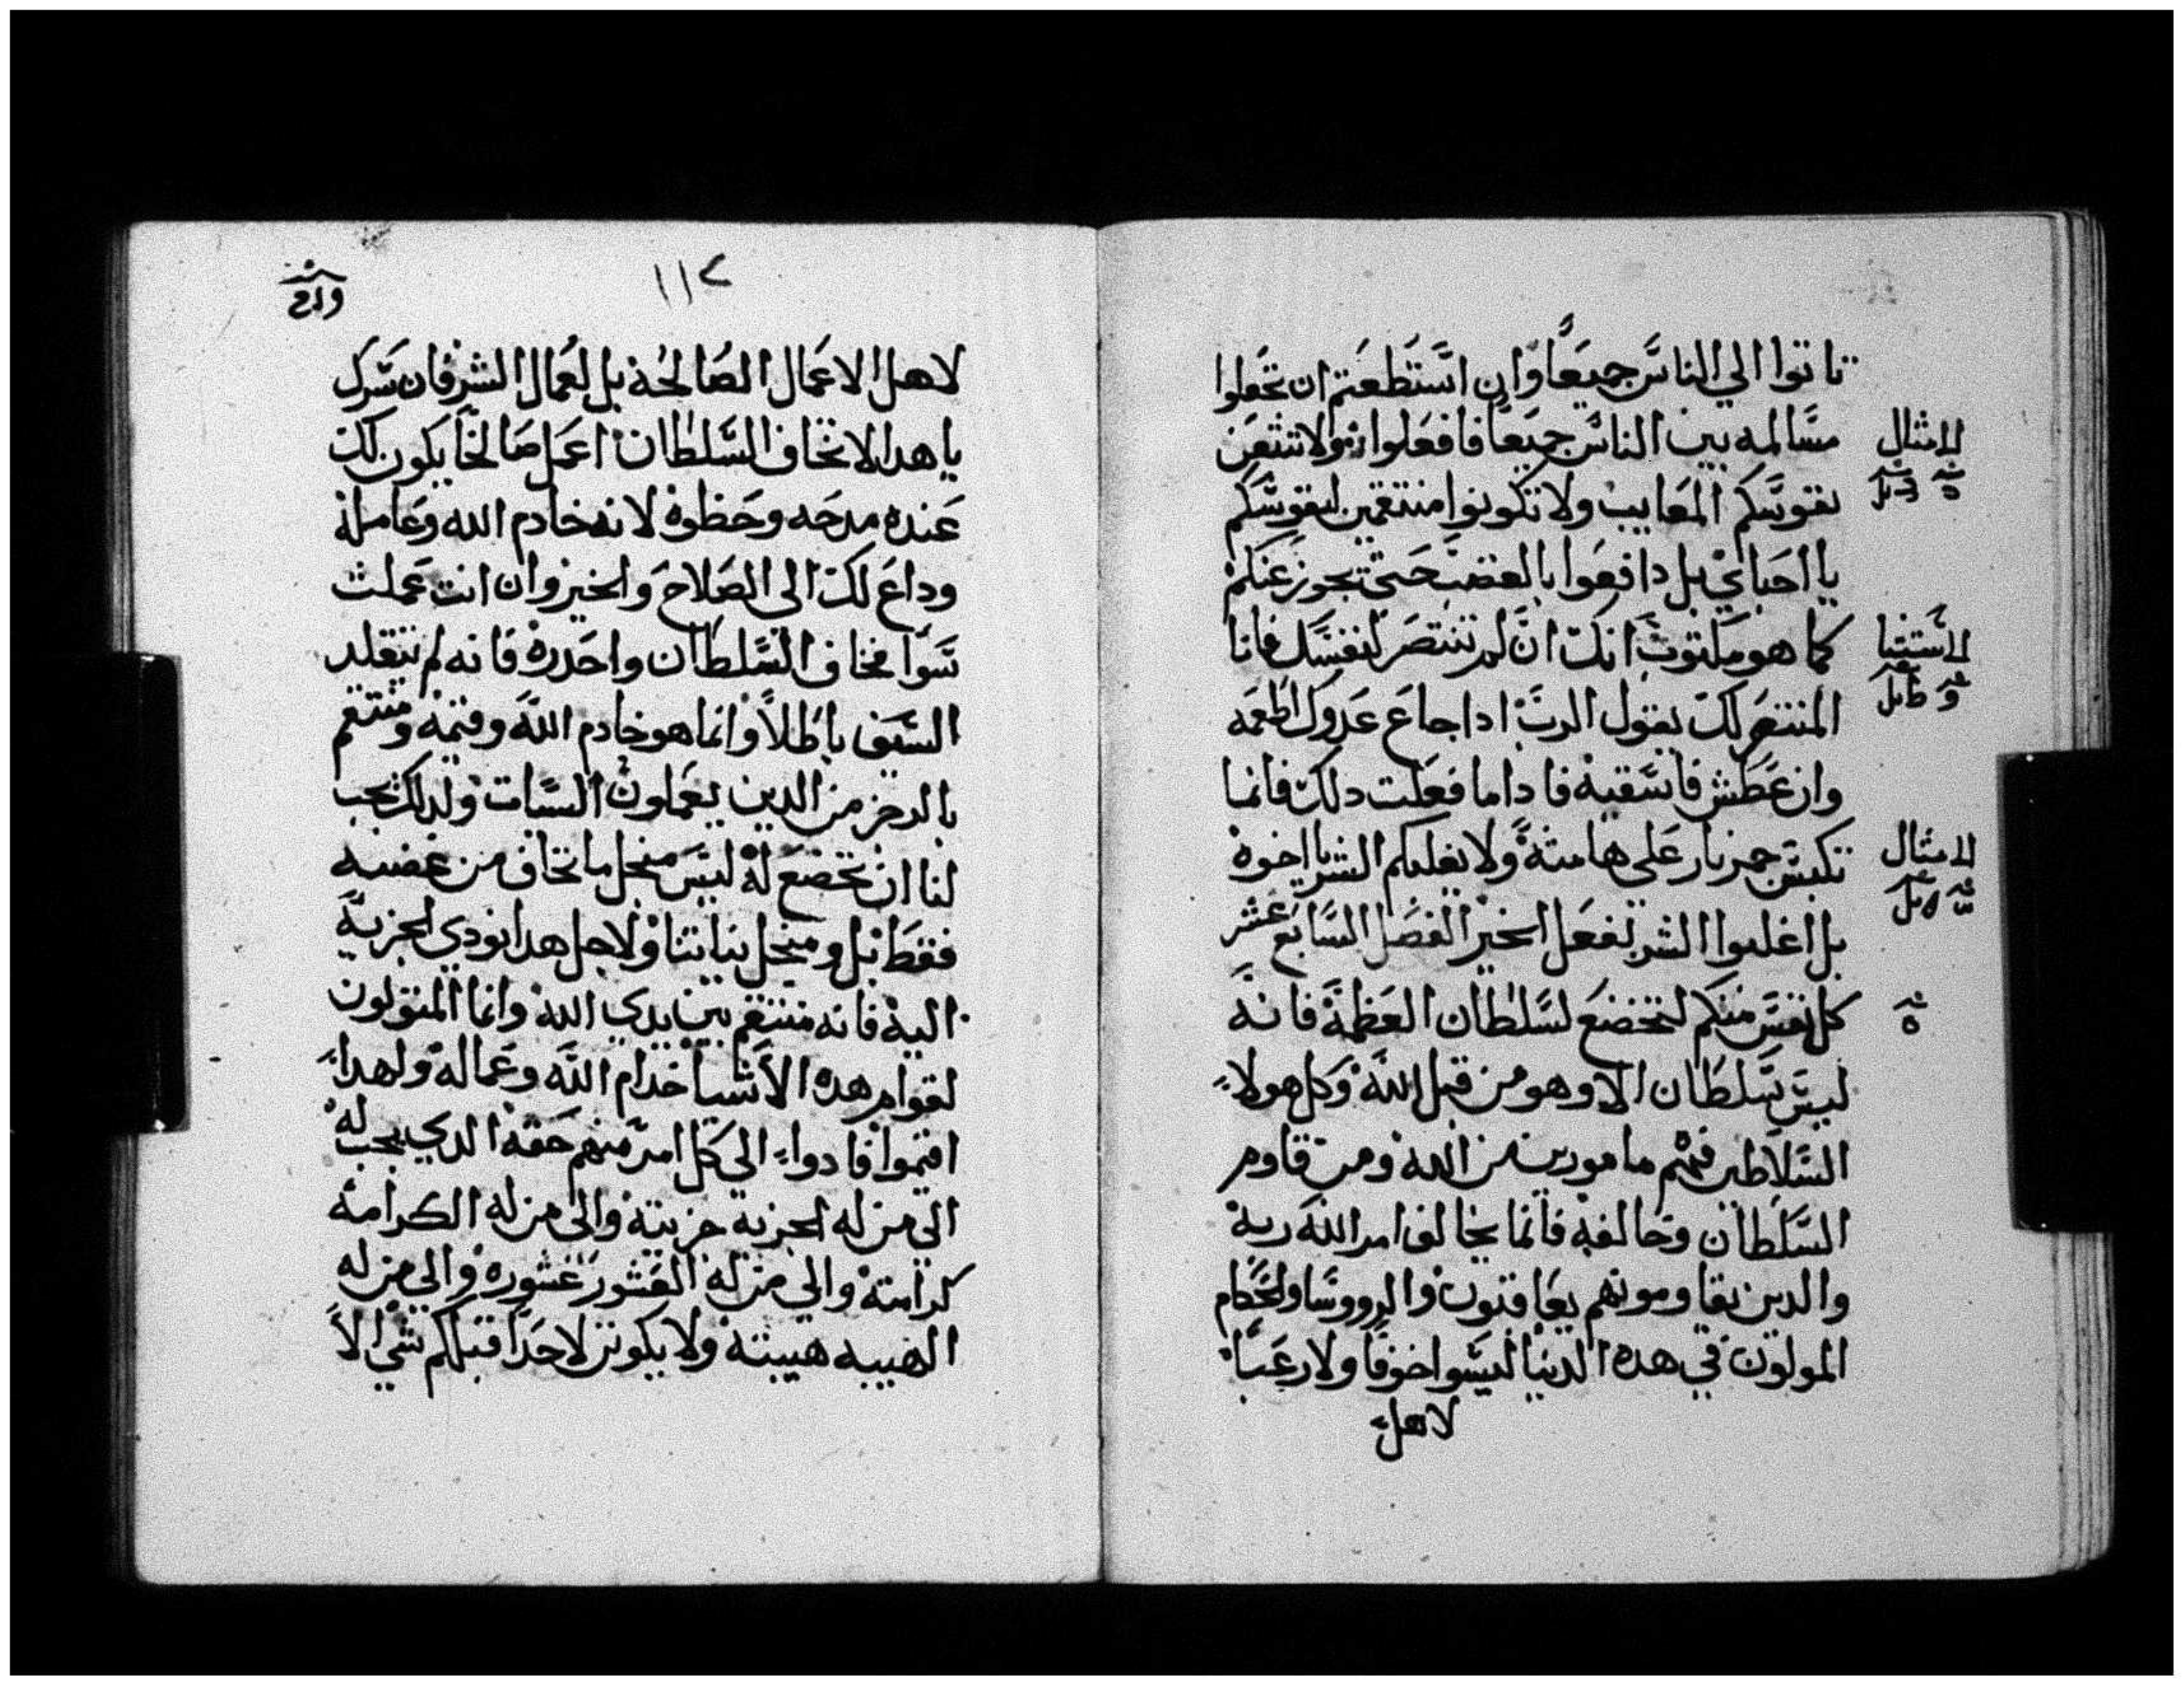 تاتوا الي الناس جميعا وان استطعتم ان تجعلوا
الامثال
مسالمه بين الناس جميعا فافعلوا ولا تتبعن
نفوسكم المعايب ولا تكونوا منتقمين لنفوسكم
يا احباي بل دافعوا بالغضب حتي تجوز عنكم
الاستثنا
كما هو مكتوب انك ان لم تنتصر لنفسك فانا
المنتصر لك يقول الرب اداجاع عدوك اطعمه
وان عطش فاسقيه فاداما فعلت دلك فانما
الامثال
تكبس جمر نار علي هامته ولا يغلبكم الشر يا اخوه
بل اغلبوا الشر بفعل الخير الفصل السابع عشر
كل نفس منكم لتخضع لسلطان العظمة فانه
ليس سلطان الا وهو من قبل الله وكل هولاء
السلاطين فهم مامورين من الله ومن قاوم
السلطان وخالفه فانما يخالف امر الله ربه
والدين يقاومونهم يعاقبون والرووسا والحكام
المولون في هده الدنيا ليسوا خوفا ولا رعبا
لاهل
١١٢
لاهل الاعمال الصالحة بل لعمال الشر فان سرك
يا هدا الا تخاف السلطان اعمل صالحا يكون لك
عنده مدحه وحظوة لانه خادم الله وعامله
وداع لك الى الصلاح والخير وان انت عملت
سوا فخاف السلطان واحدره فانه لم يتقلد
السيف باطلا وانما هو خادم الله وقيمه ومنتقم
بالرجز من الدين يعملون السيات ولدلك يجب
لنا ان نخضع له ليس منجل ما نخاف من غضبه
فقط بل ومنجل نياتنا ولاجل هدا نودي الجزية
اليه فانه منتقم بين يدي الله وانما المتولون
لقوام هده الاشيا خدام الله وعماله ولهدا
اقيموا فادوا الي كل امر منهم حقه الدي يجب له
الي من له الجزيه جزيته والى من له الكرامه
كرامته والي من له العشور عشوره والي من له
الهيبه هيبته ولا يكونن لاحدا قبلكم شي الا